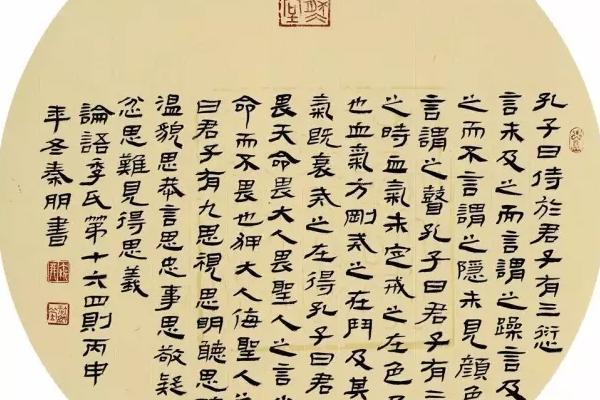 孔子曰侍於君子有三愆
言未及之而言謂之躁言及
之而不言謂之隱未見顏色
言謂之瞽孔子曰君子有三
之時血氣未定戒之在色及
也血氣方剛戒之在鬥及其
氣既衰戒之在得孔子曰君
畏天命畏大人畏聖人之言
命而不畏也狎大人侮聖人
曰君子有九思視思明聽思
溫貌思恭言思忠事思敬疑
忿思難見得思義
論語季氏第十六四則丙申
年冬秦朋書